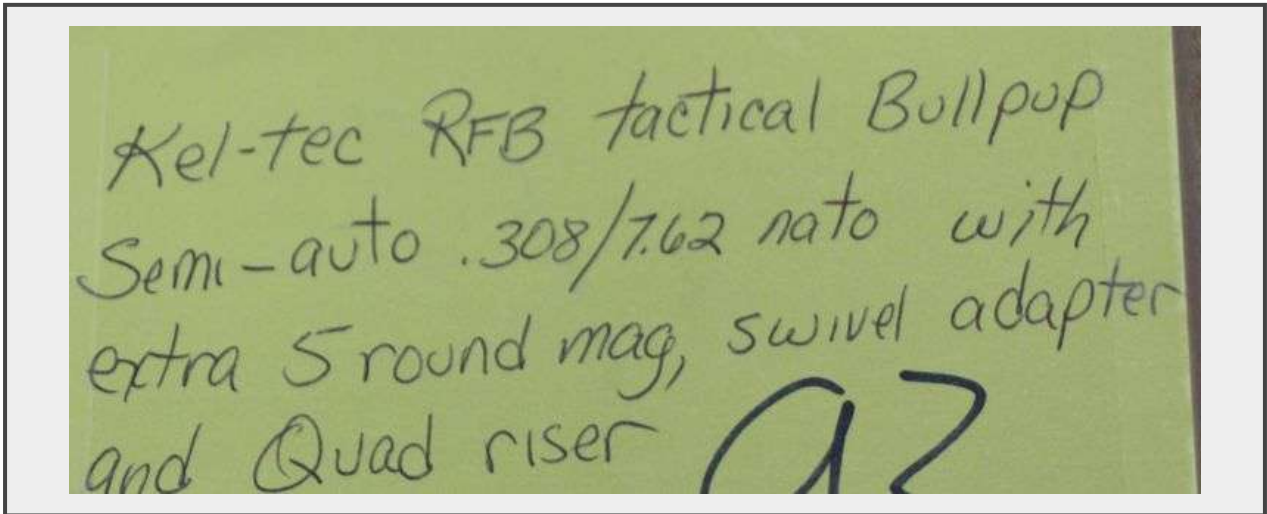 Kel-tec RFB tactical Bullpup
Semi-auto .308/7.62 nato with
extra 5 round mag, swivel adapter
and Quad riser